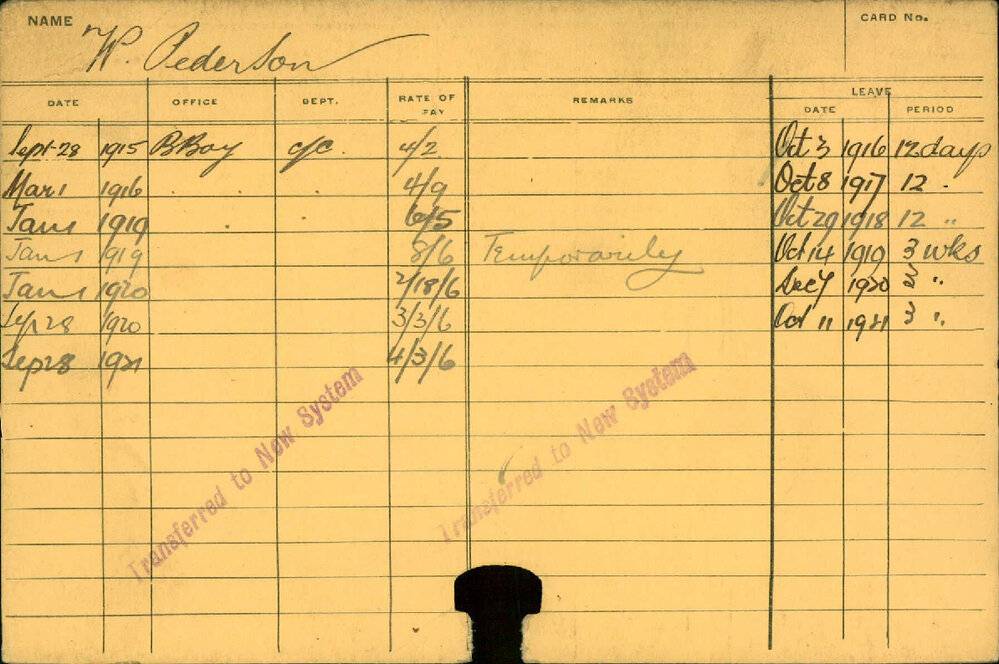 NAME W. Pederson CARD No.
DATE OFFICE DEPT. RATE OF PAY REMARKS LEAVE
DATE PERIOD
Sept 28 1915 B Bay c/c. 4/2 Oct 3 1916 12 days
Mar 1 1916 . . . 4/9 Oct 8 1917 12 .
Jan 1 1919 . . 6/5 Oct 29 1918 12 "
Jan 1 1919 8/6 Temporarily Oct 14 1919 3 wks
Jan 1 1920 2/18/6 Dec 7 1920 3 "
Sep 28 1920 3/3/6 Oct 11 1921 3 "
Sep 28 1921 4/3/6
Transferred to New System
Transferred to New System